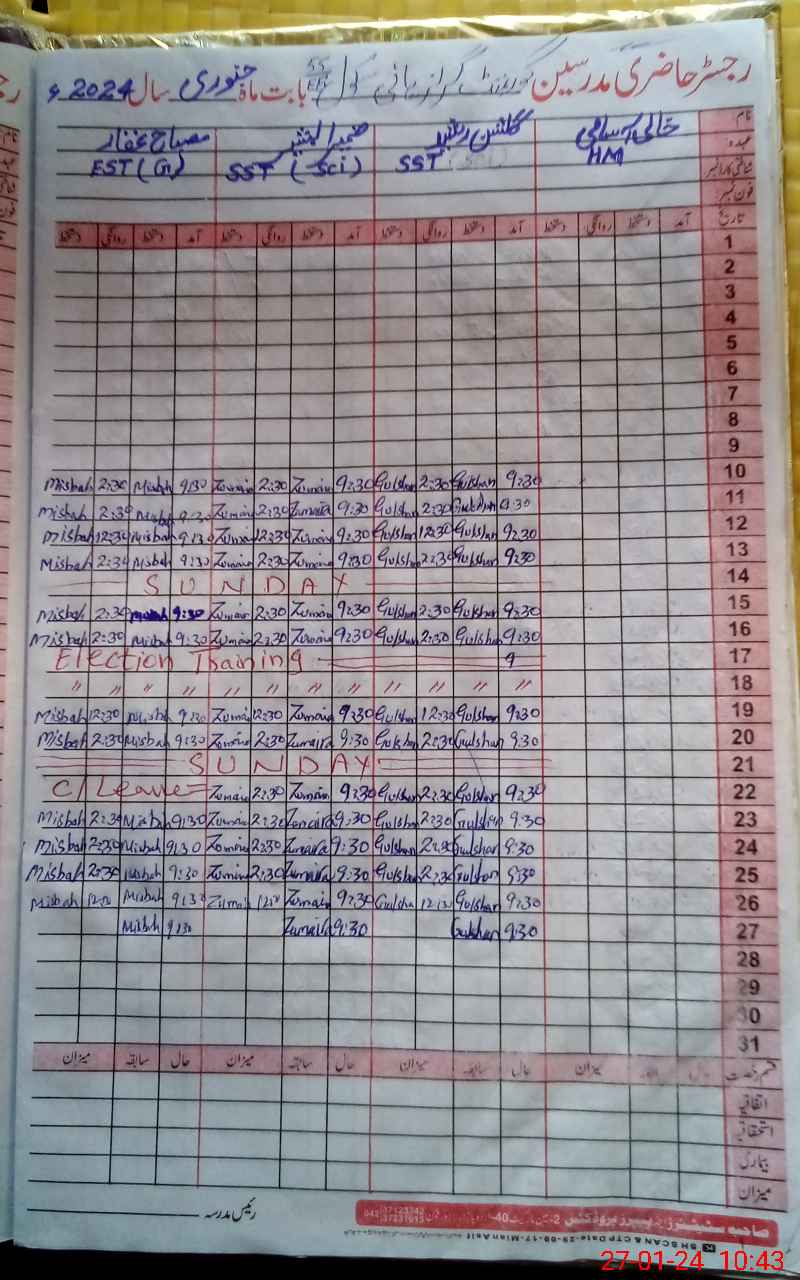 رجسٹر حاضری مدرسین گورنمنٹ گرلز ہائی سکول بابت ماہ جنوری سال 2024ء
نام خالی آسامی گلشن رشید مصباح غفار
عہدہ HM SST SST (Sci) EST (G)
شناختی کارڈ نمبر
فون نمبر
تاریخ آمد دستخط روانگی دستخط آمد دستخط روانگی دستخط آمد دستخط روانگی دستخط آمد دستخط روانگی دستخط
1
2
3
4
5
6
7
8
9
Misbah 2:30 Misbah 9:30 Zumaira 2:30 Zumaira 9:30 Gulshan 2:30 Gulshan 9:30 10
Misbah 2:30 Misbah 9:30 Zumaira 2:30 Zumaira 9:30 Gulshan 2:30 Gulshan 9:30 11
Misbah 12:30 Misbah 9:30 Zumaira 12:30 Zumaira 9:30 Gulshan 12:30 Gulshan 9:30 12
Misbah 2:30 Misbah 9:30 Zumaira 2:30 Zumaira 9:30 Gulshan 2:30 Gulshan 9:30 13
SUNDAY 14
Misbah 2:30 Misbah 9:30 Zumaira 2:30 Zumaira 9:30 Gulshan 2:30 Gulshan 9:30 15
Misbah 2:30 Misbah 9:30 Zumaira 2:30 Zumaira 9:30 Gulshan 2:30 Gulshan 9:30 16
Election Training 9 17
" " " " " " " " " " " " 18
Misbah 12:30 Misbah 9:30 Zumaira 12:30 Zumaira 9:30 Gulshan 12:30 Gulshan 9:30 19
Misbah 2:30 Misbah 9:30 Zumaira 2:30 Zumaira 9:30 Gulshan 2:30 Gulshan 9:30 20
SUNDAY 21
C/Leave Zumaira 2:30 Zumaira 9:30 Gulshan 2:30 Gulshan 9:30 22
Misbah 2:30 Misbah 9:30 Zumaira 2:30 Zumaira 9:30 Gulshan 2:30 Gulshan 9:30 23
Misbah 2:30 Misbah 9:30 Zumaira 2:30 Zumaira 9:30 Gulshan 2:30 Gulshan 9:30 24
Misbah 2:30 Misbah 9:30 Zumaira 2:30 Zumaira 9:30 Gulshan 2:30 Gulshan 9:30 25
Misbah Misbah 9:30 Zumaira Zumaira 9:30 Gulshan 12:30 Gulshan 9:30 26
Misbah 9:30 Zumaira 9:30 Gulshan 9:30 27
28
29
30
31
قسم رخصت حال سابقہ میزان حال سابقہ میزان حال سابقہ میزان حال سابقہ میزان
اتفاقیہ
استحقاقیہ
بیماری
میزان
رئیس مدرسہ
27-01-24 10:43